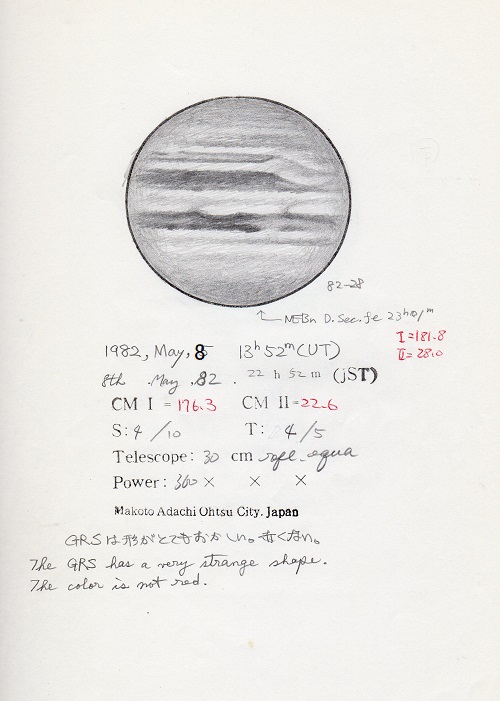 82-28
NEBn D. Sec. fe 23h01m
I=181.8
II=28.0
1982, May, 8 13h 52m (UT)
8th . May . 82 . 22 h 52 m (jST)
CM I = 176.3 CM II=22.6
S: 4 /10 T: 4/5
Telescope: 30 cm refl. equa
Power: 360 × × ×
Makoto Adachi Ohtsu City. Japan
GRSは形がとてもおかしい。赤くない。
The GRS has a very strange shape.
The color is not red.